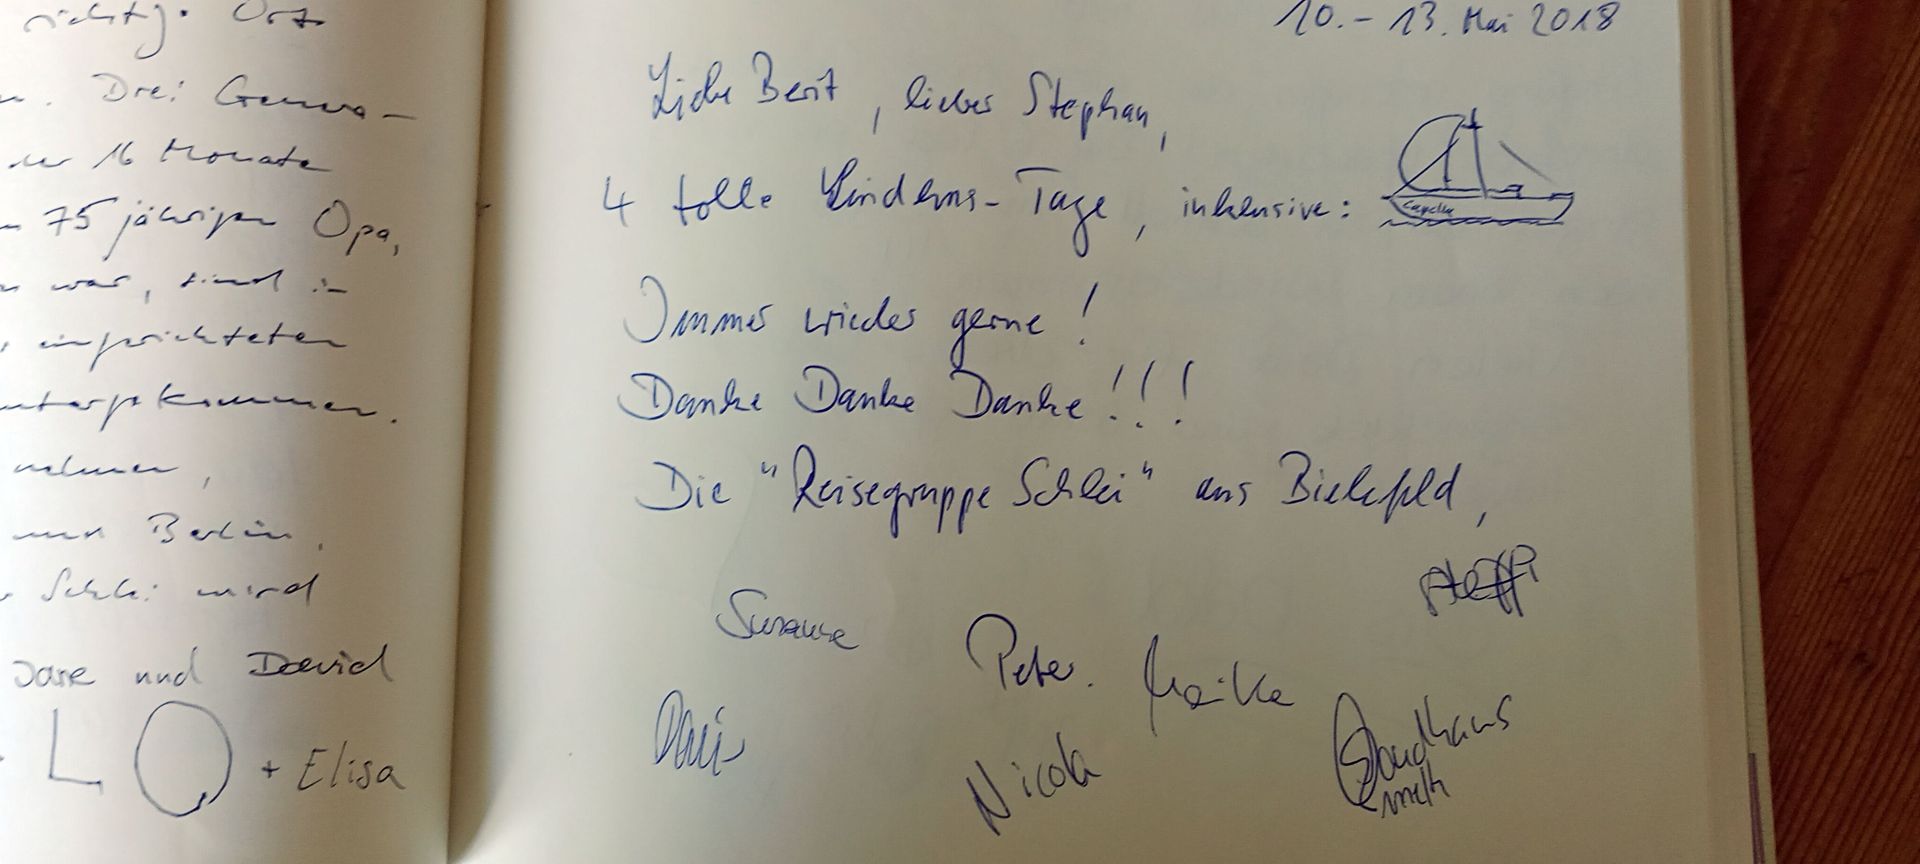 richtige Ort
Drei Genera-
der 16 Monate
75 jährigen Opa,
war, sind in
eingerichteten
untergekommen.
nehmen,
aus Berlin,
Schlei wird
und David
LO + Elisa
10. - 13. Mai 2018
Liebe Berit, lieber Stephan,
4 tolle Lindenis-Tage, inklusive:
Capella
Immer wieder gerne!
Danke Danke Danke!!!
Die "Reisegruppe Schlei" aus Bielefeld,
Steffi
Susanne
Peter. Maike
Nicola